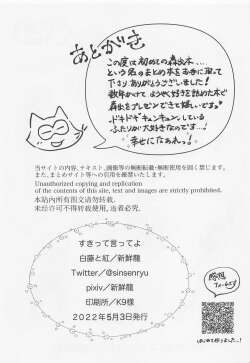 あとがき
この度は初めての森出本…
という名のまとめ本をお手に取って
下さりありがとうございました!
数年かけてようやく好きを詰めた本で
森出をプレゼンできて嬉しいです。
ドキドギキュンキュンしている
ふたりが大好きなのです…!
幸せになぁれっ!
当サイトの内容、テキスト、画像等の無断転載・無断使用を固く禁じます。
また、まとめサイト等への引用を厳禁いたします。
Unauthorized copying and replication
of the contents of this site, text and images are strictly prohibited.
本站内所有图文请勿转载.
未经许可不得转载使用,违者必究.
すきって言ってよ
白藤と紅/新鮮龍
Twitter/@sinsenryu
pixiv/新鮮龍
印刷所/K9様
2022年5月3日発行
感想
フォームより
はじめて作りました…!